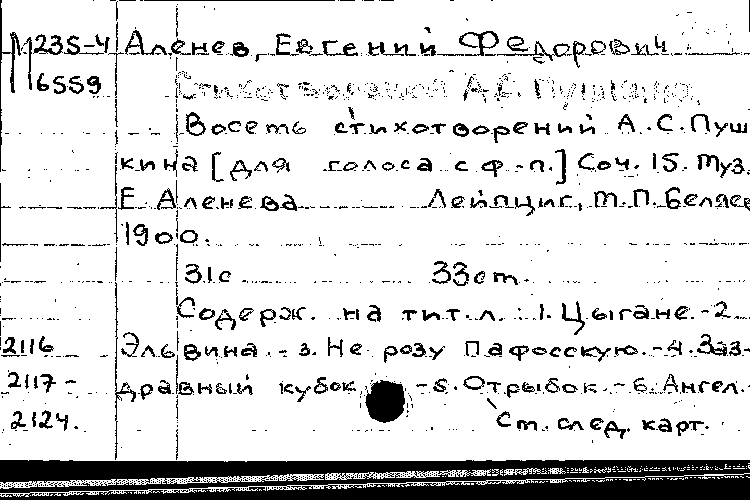 М235-4 Аленев, Евгений Федорович
16559 Стихотворений А.С. Пушкина.
Восемь стихотворений А.С.Пуш
кина [для голоса с ф.-п.] Соч. 15. Муз.
Е. Аленева Лейпциг, М.П.Беляев
1900.
31с 33cm.
Содерж. на тит. л. : 1. Цыгане.-2
2116 Эльвина.- 3. Не розу Пафосскую.-4. Заз-
2117- дравный кубок -5. Отрывок.-6. Ангел.-
2124. См. след. карт.